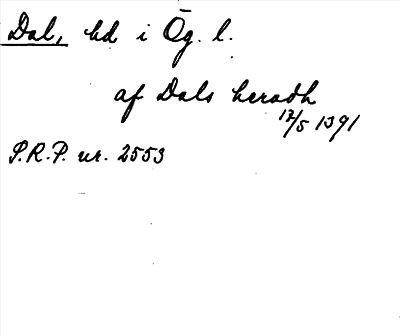 Dal, hd i Ög. l.
af Dals heradh
12/5 1391
P.R.P. nr. 2553